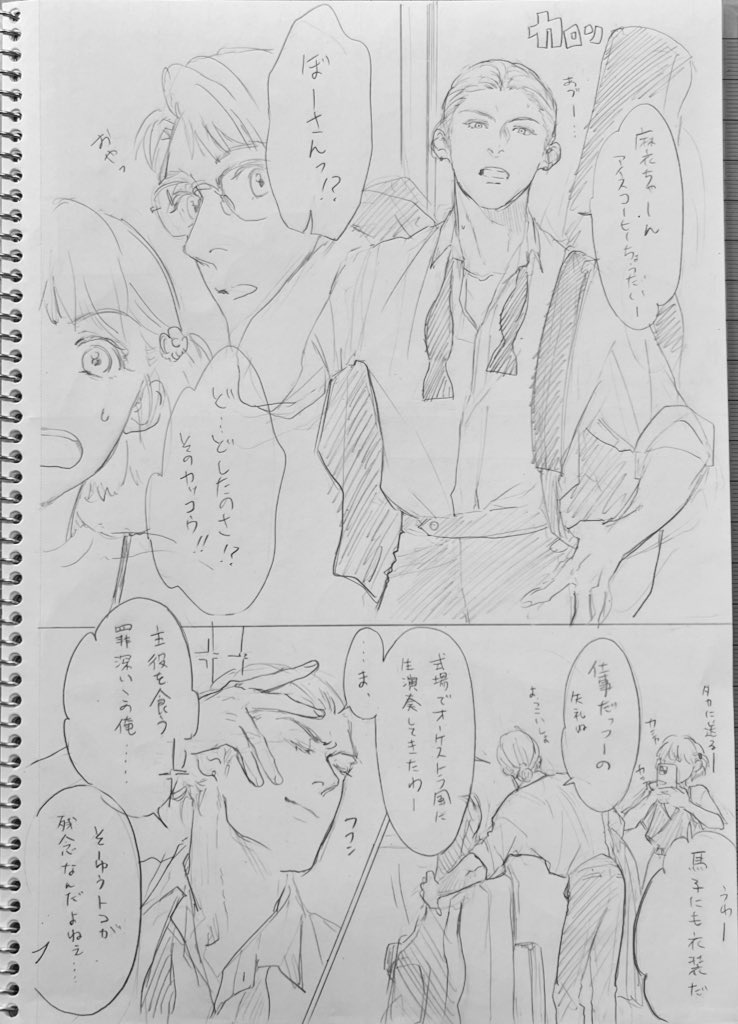 カロッ
あづー…
麻衣ちゃーん
アイスコーヒーちょうだいー
ぼーさんっ!?
おやっ
ど…どしたのさ!?
そのカッコウ!!
タカに送るー
カシャ
カシャ
うわー
馬子にも衣装だ
仕事だっつーの
失礼ね
よっこいしょ
式場でオーケストラ風に
生演奏してきたわー
…ま、
フフン
主役を食う
罪深いこの俺……
そーゆうトコが
残念なんだよねぇ…